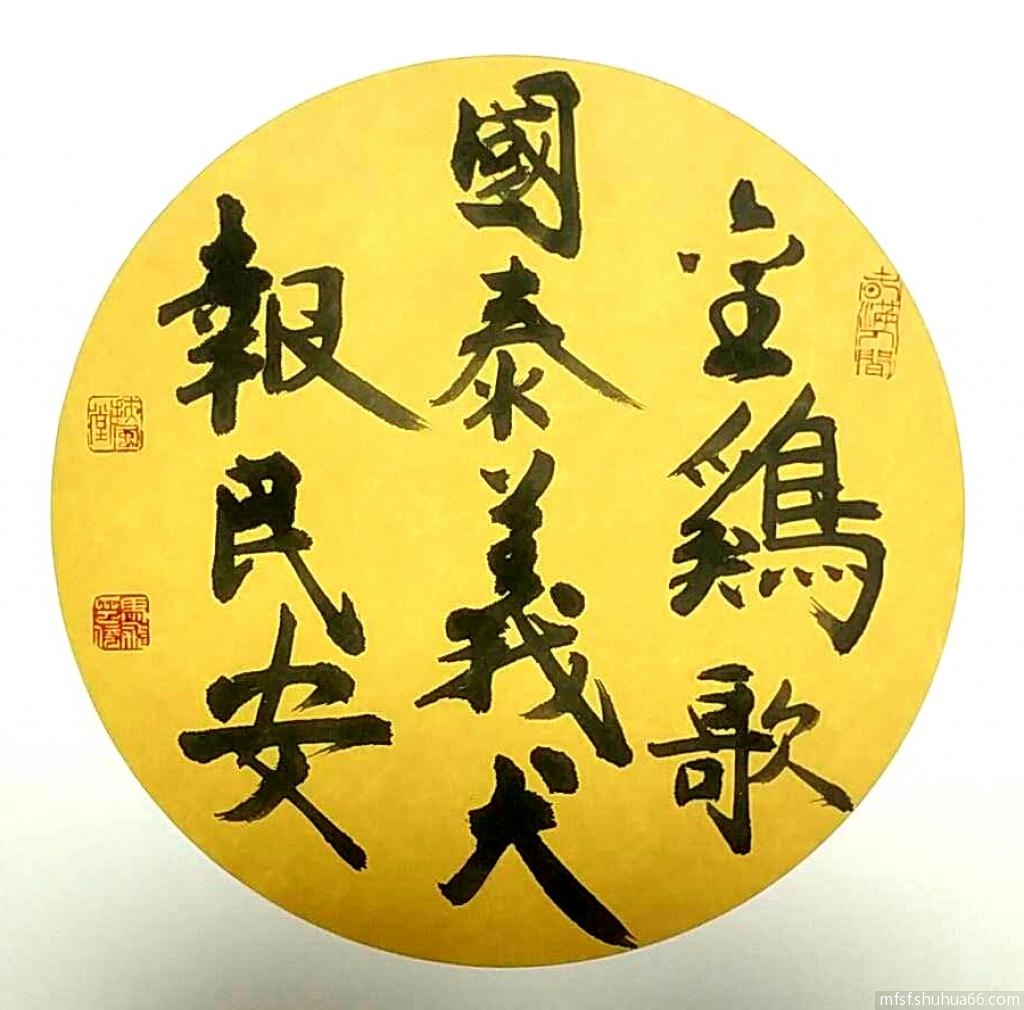 金鷄歌
國泰義犬
報民安
mfsfshuhua66.com